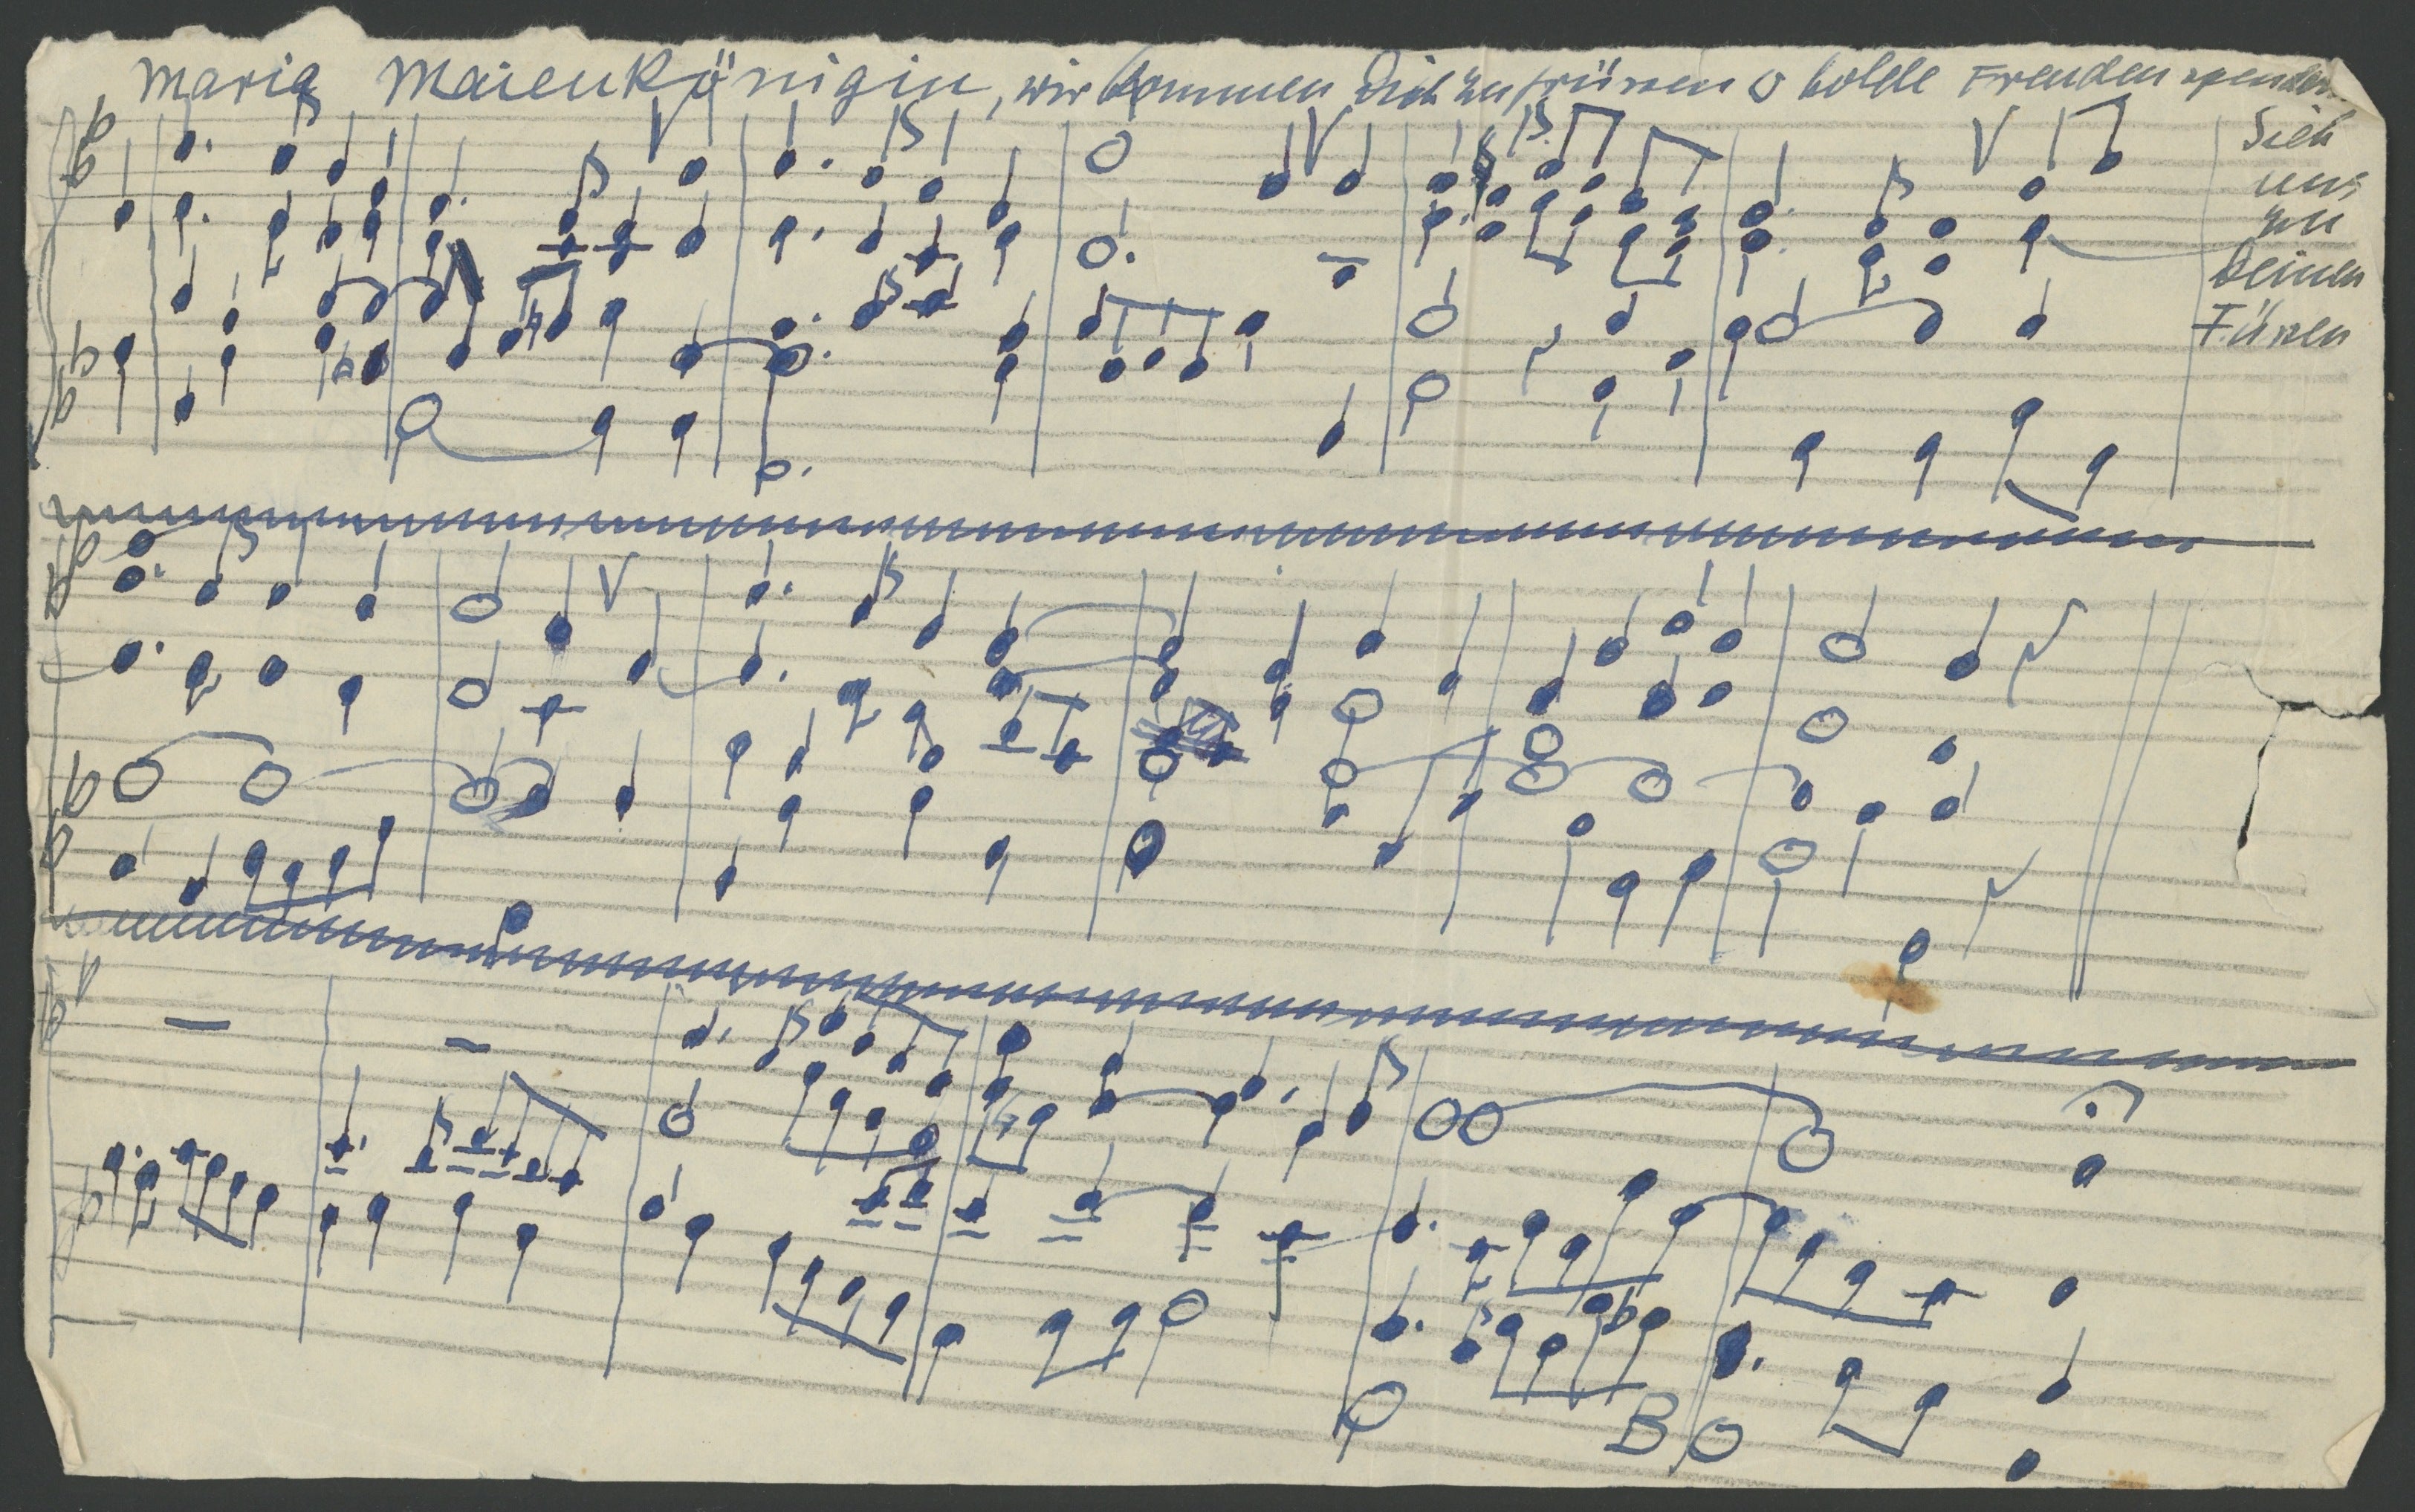 Maria Maienkönigin, wir kommen Dich zu grüssen o holde Freudenspenderin
Sieh
uns
zu
Deinen
Füssen
B